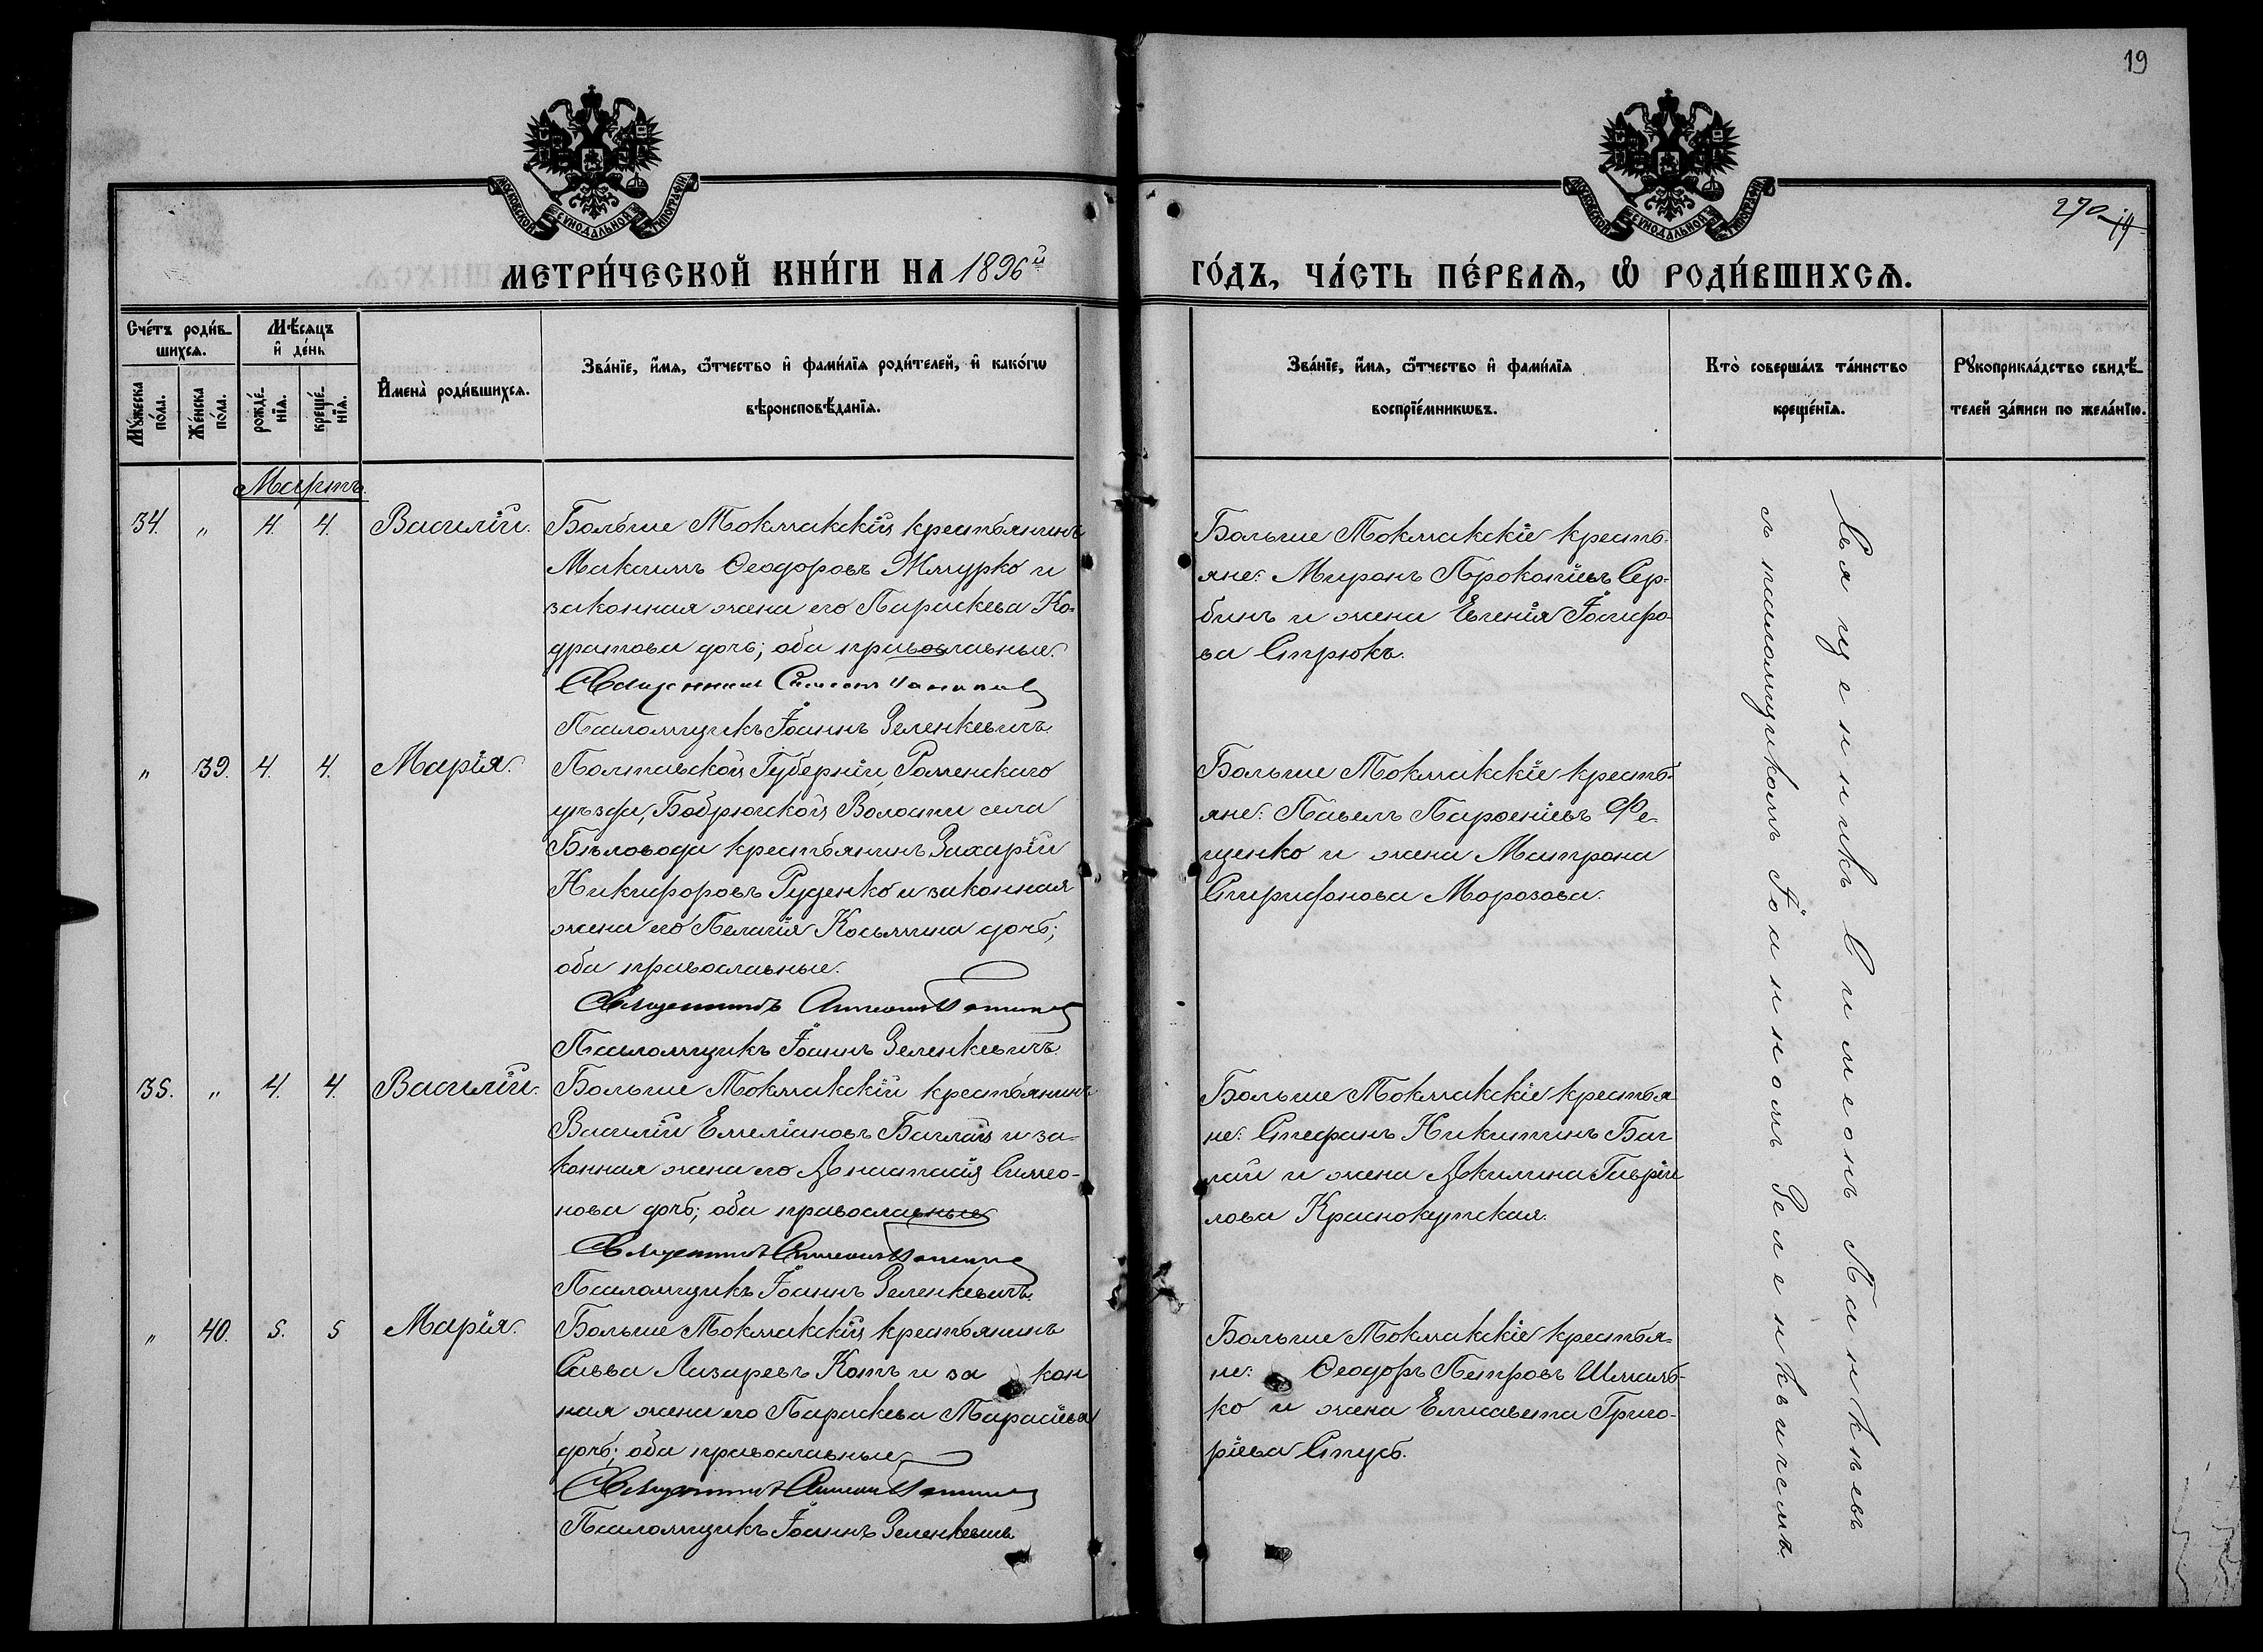 19
270
19
МОСКОВСКОЙ СѴНОДАЛЬНОЙ ТИПОГРАФІИ
МОСКОВСКОЙ СѴНОДАЛЬНОЙ ТИПОГРАФІИ
МЕТРИ́ЧЕСКОЙ КНИ́ГИ НА 1896й
ГО́ДЪ, ЧА́СТЬ ПЕ́РВАѦ, Ѡ҆ РОДИ́ВШИХСѦ.
Сче́тъ роди́в-
шихсѧ.
Мѹ́жеска по́ла.
Же́нска по́ла.
Мѣ́сѧцъ
и҆ де́нь
рожде́-
нїѧ.
креще́-
нїѧ.
И҆мена̀ роди́вшихсѧ.
Зва́нїе, и҆́мѧ, ѻ҆́тчество и҆ фами́лїѧ роди́телей, и҆ како́гѡ
вѣроисповѣ́данїѧ.
Зва́нїе, и҆́мѧ, ѻ҆́тчество и҆ фами́лїѧ
воспрїе́мникѡвъ.
Кто̀ соверша́лъ та́инство
креще́нїѧ.
Рꙋкоприкла́дство свидѣ́-
телей за́писи по жела́нїю.
Мартъ.
34. „ 4. 4. Василій.
Больше Токмакскій крестьянинъ
Максимъ Ѳеодоровъ Жмурко и
законная жена его Параскева Ко-
дратова дочь; оба православные.
Священникъ Симеонъ
Псаломщикъ Іоаннъ Зеленкевичъ.
Больше Токмакскіе кресть-
яне: Миронъ Прокопіевъ Сер-
бинъ и жена Евгенія Іосифо-
ва Стрюкъ.
„ 39. 4. 4. Марія.
Полтавской Губерніи, Роменскаго
уѣзда, Бобрикской Волости села
Бѣловода крестьянинъ Захарій
Никифоровъ Руденко и законная
жена его Пелагія Косьмина дочь;
оба православные.
Священникъ Симеонъ
Псаломщикъ Іоаннъ Зеленкевичъ.
Больше Токмакскіе кресть-
яне: Павелъ Парѳеніевъ Фе-
щенко и жена Матрона
Спиридонова Морозова.
35. „ 4. 4. Василій.
Больше Токмакскій крестьянинъ
Василій Емеліановъ Баглай и за-
конная жена его Анастасія Симео-
нова дочь; оба православные
Священникъ Симеонъ
Псаломщикъ Іоаннъ Зеленкевичъ.
Больше Токмакскіе крестья-
не: Стефанъ Никитинъ Баг
лай и жена Акилина Гаврі
лова Краснокутская.
„ 40. 5. 5 Марія.
Больше Токмакскій крестьянинъ
Савва Лазаревъ Котъ и за кон
ная жена его Параскева Тарасіева
дочь; оба православные
Священникъ Симеонъ
Псаломщикъ Іоаннъ Зеленкевичъ
Больше Токмакскіе крестья-
не: Ѳеодоръ Петровъ Шмаль-
ко и жена Елисавета Григо-
ріева Стусь.
Священникъ Симеонъ
съ псаломщикомъ Іоанномъ Зеленкевичемъ.